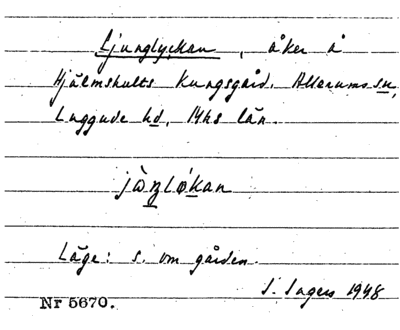 Ljunglyckan, åker å
Hjälmshults Kungsgård. Allerums sn,
Luggude hd, Mhs län.
Läge: s. om gården.
S. Ingers 1948
Nr 5670.